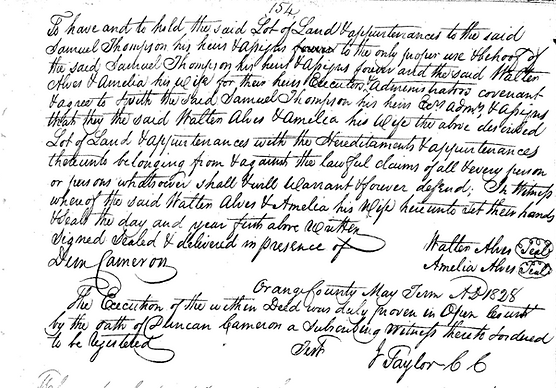 154
To have and to hold, the said Lot of Land & appurtenances to the said
Samuel Thompson his heirs & assigns forever to the only proper use & behoof of
the said Samuel Thompson his heirs & assigns forever and the said Walter
Alves & Amelia his Wife for their heirs Executors Administrators covenant
& agree to & with the said Samuel Thompson his heirs Exrs Admrs & assigns
that they the said Walter Alves & Amelia his Wife the above described
Lot of Land & appurtenances with the Hereditaments & appurtenances
thereunto belonging from & against the lawful claims of all & every person
or persons whatsoever shall & will Warrant & forever defend. In Witness
whereof the said Walter Alves & Amelia his Wife hereunto set their hands
& seal the day and year first above Written
Signed Sealed & delivered in presence of Walter Alves Seal
Dun Cameron Amelia Alves Seal
Orange County May Term AD 1828
The Execution of the within Deed was duly proven in Open Court
by the oath of Duncan Cameron a Subscribing Witness thereto & ordered
to be registered
Test J Taylor C C